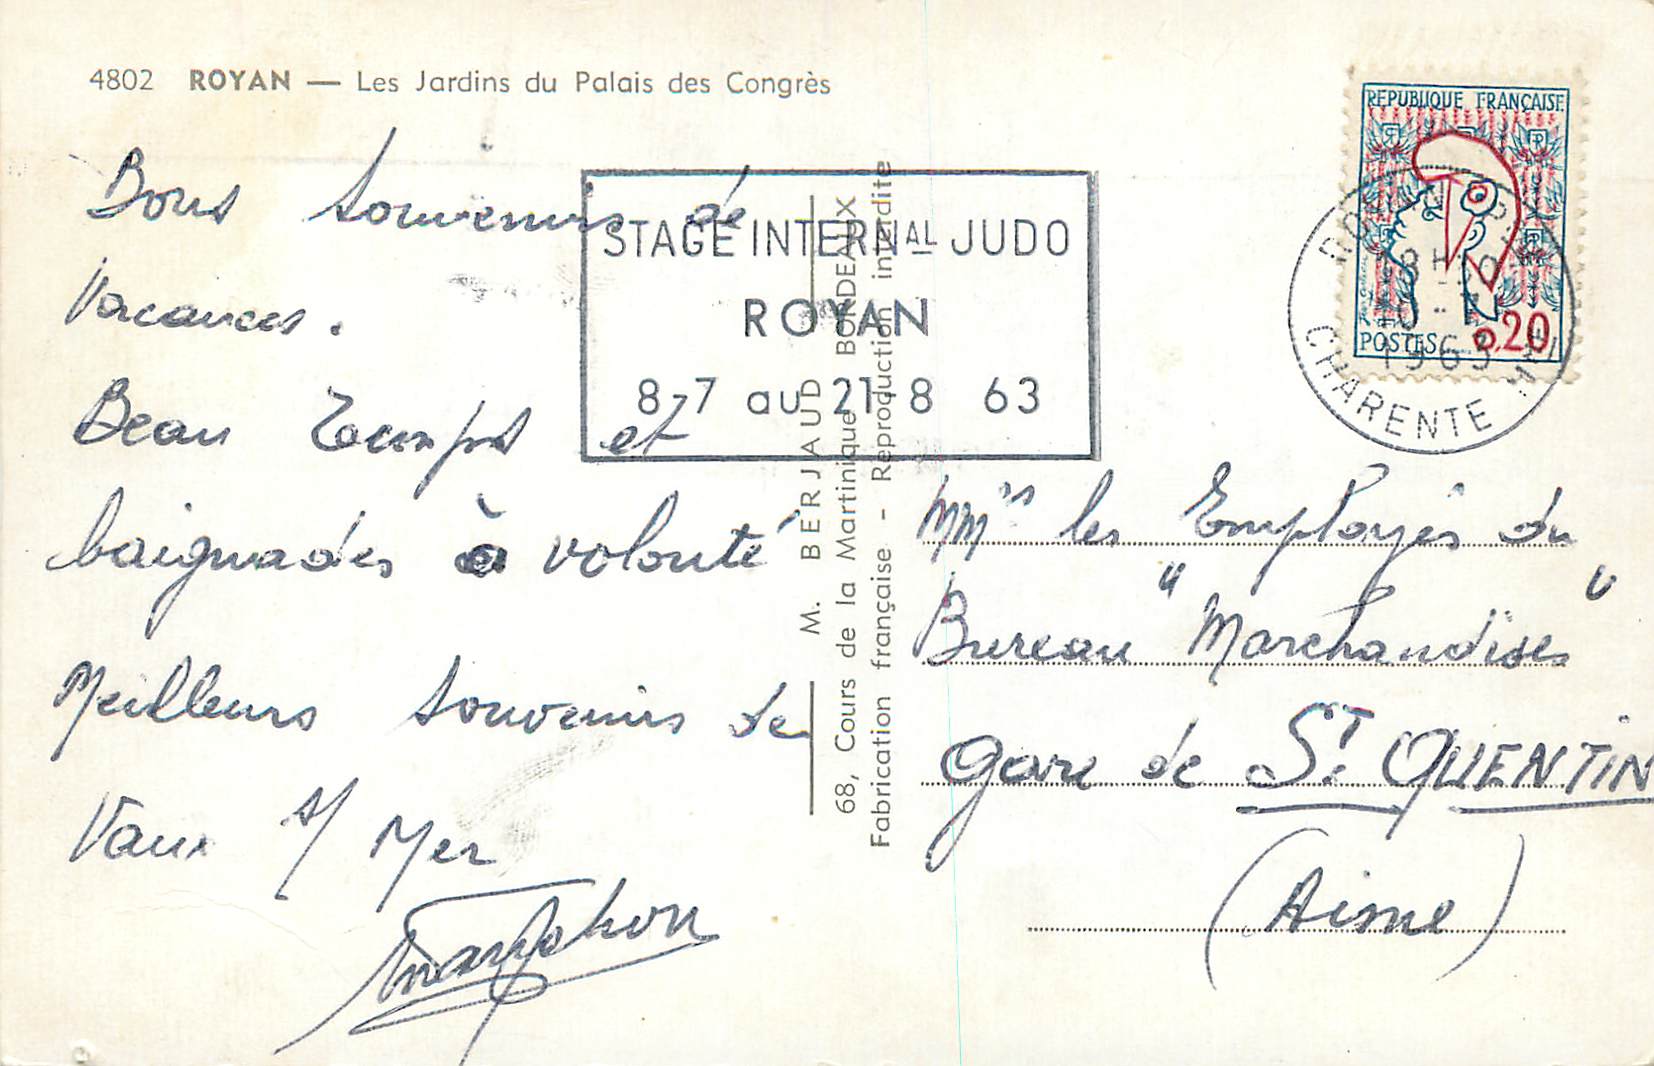 4802 ROYAN — Les Jardins du Palais des Congrès
Bons souvenirs de
Vacances.
Beau Temps et
baignades à volonté
Meilleurs souvenirs de
Vaux s/ Mer
STAGE INTERNAL JUDO
ROYAN
8-7 au 21-8 63
M. BERJAUD
68, Cours de la Martinique BORDEAUX
Fabrication française - Reproduction interdite
REPUBLIQUE FRANÇAISE
POSTES 0,20
ROYAN
1963
CHARENTE Mme
MMrs les Employés du
Bureau "Marchandises"
Gare de St QUENTIN
(Aisne)